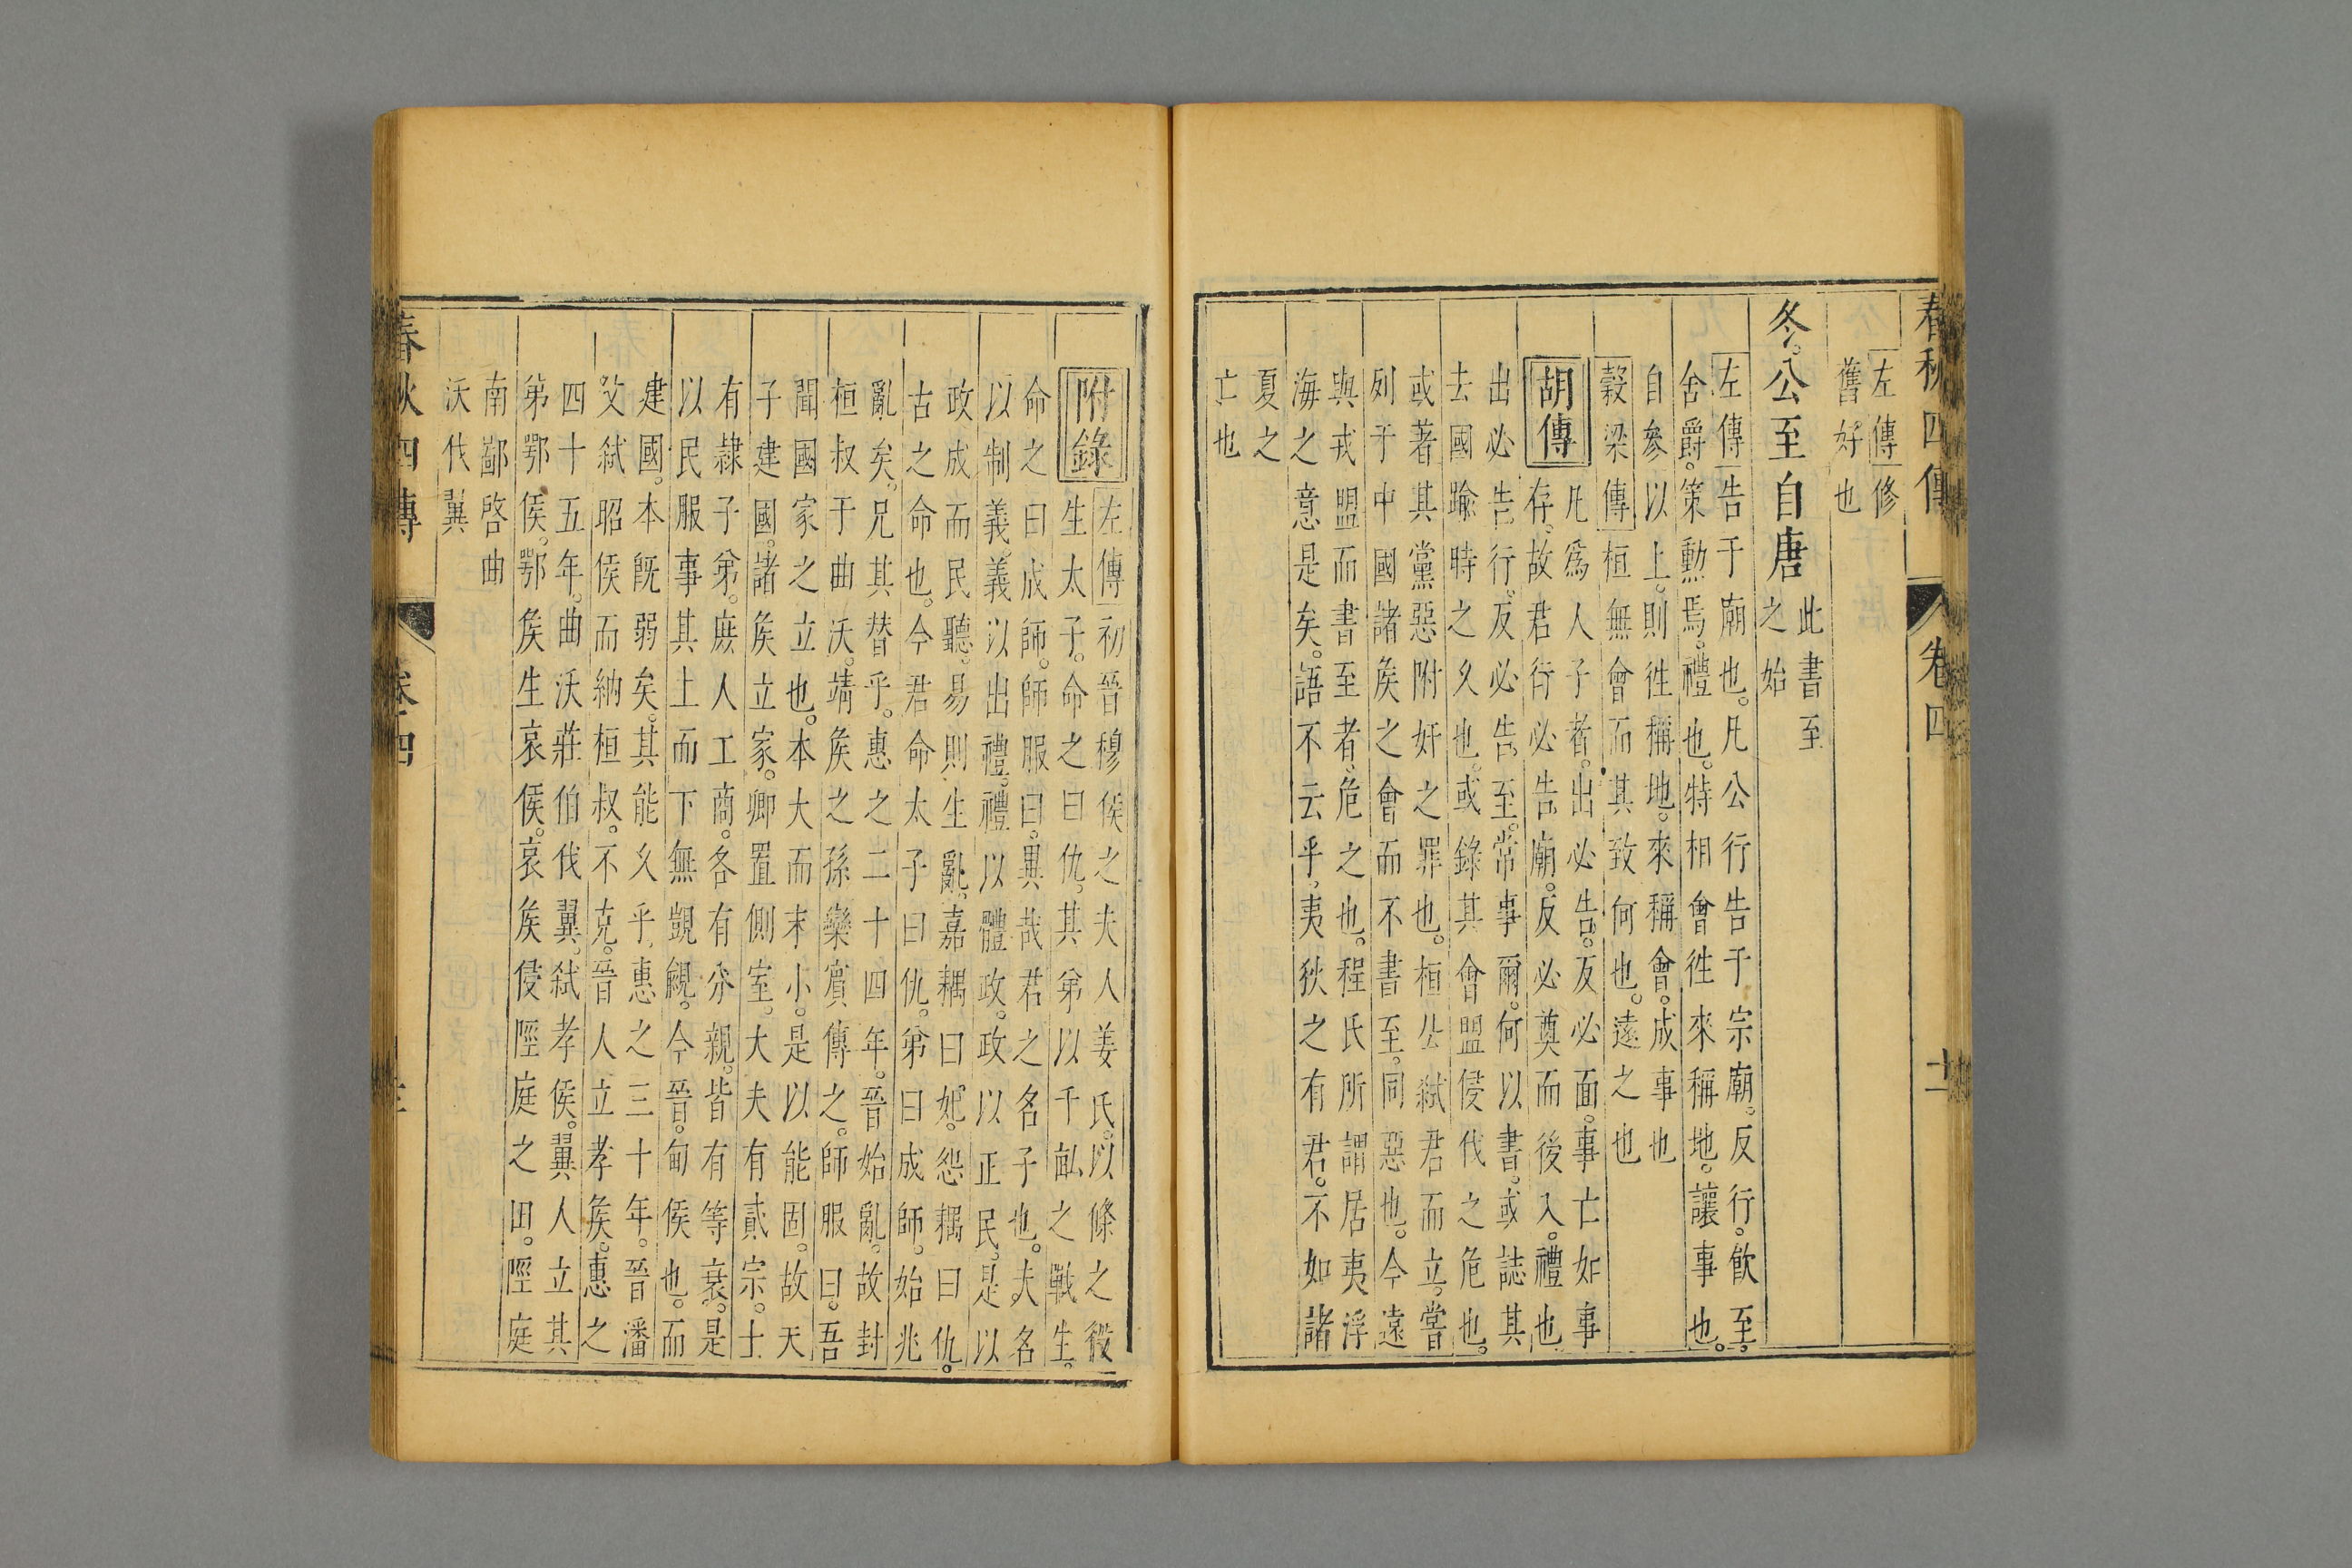 春秋四傳 卷四 十二
左傳修
舊好也
冬。公至自唐
此書至
之始
左傳告于廟也。凡公行告于宗廟。反行。飲至。
舍爵。策勳焉。禮也。特相會徃來稱地。讓事也。
自參以上。則徃稱地。來稱會。成事也
穀梁傳桓無會而其致何也。遠之也
胡傳
凡爲人子者。出必告。反必面。事亡如事
存。故君行必告廟。反必奠而後入。禮也
出必告行。反必告至。常事爾。何以書。或誌其
去國踰時之久也。或錄其會盟侵伐之危也。
或著其黨惡附奸之罪也。桓公弑君而立。嘗
列于中國諸矦之會而不書至。同惡也。今遠
與戎盟而書至者。危之也。程氏所謂居夷浮
海之意是矣。語不云乎。夷狄之有君。不如諸
夏之
亡也
附錄
左傳初晉穆侯之夫人姜氏。以條之役
生太子。命之曰仇。其弟以千畝之戰生。
命之曰成師。師服曰。異哉君之名子也。夫名
以制義。義以出禮。禮以體政。政以正民。是以
政成而民聽。易則生亂。嘉耦曰妃。怨耦曰仇。
古之命也。今君命太子曰仇。弟曰成師。始兆
亂矣。兄其替乎。惠之二十四年。晉始亂。故封
桓叔于曲沃。靖矦之孫欒賓傳之。師服曰。吾
聞國家之立也。本大而末小。是以能固。故天
子建國。諸矦立家。卿置側室。大夫有貳宗。士
有隸子弟。庶人工商。各有分親。皆有等衰。是
以民服事其上而下無覬覦。今晉。甸侯也。而
建國。本旣弱矣。其能久乎。惠之三十年。晉潘
父弑昭侯而納桓叔。不克。晉人立孝矦。惠之
四十五年。曲沃莊伯伐翼。弑孝侯。翼人立其
弟鄂侯。鄂矦生哀侯。哀矦侵陘庭之田。陘庭
南鄙啓曲
沃伐翼
春秋四傳